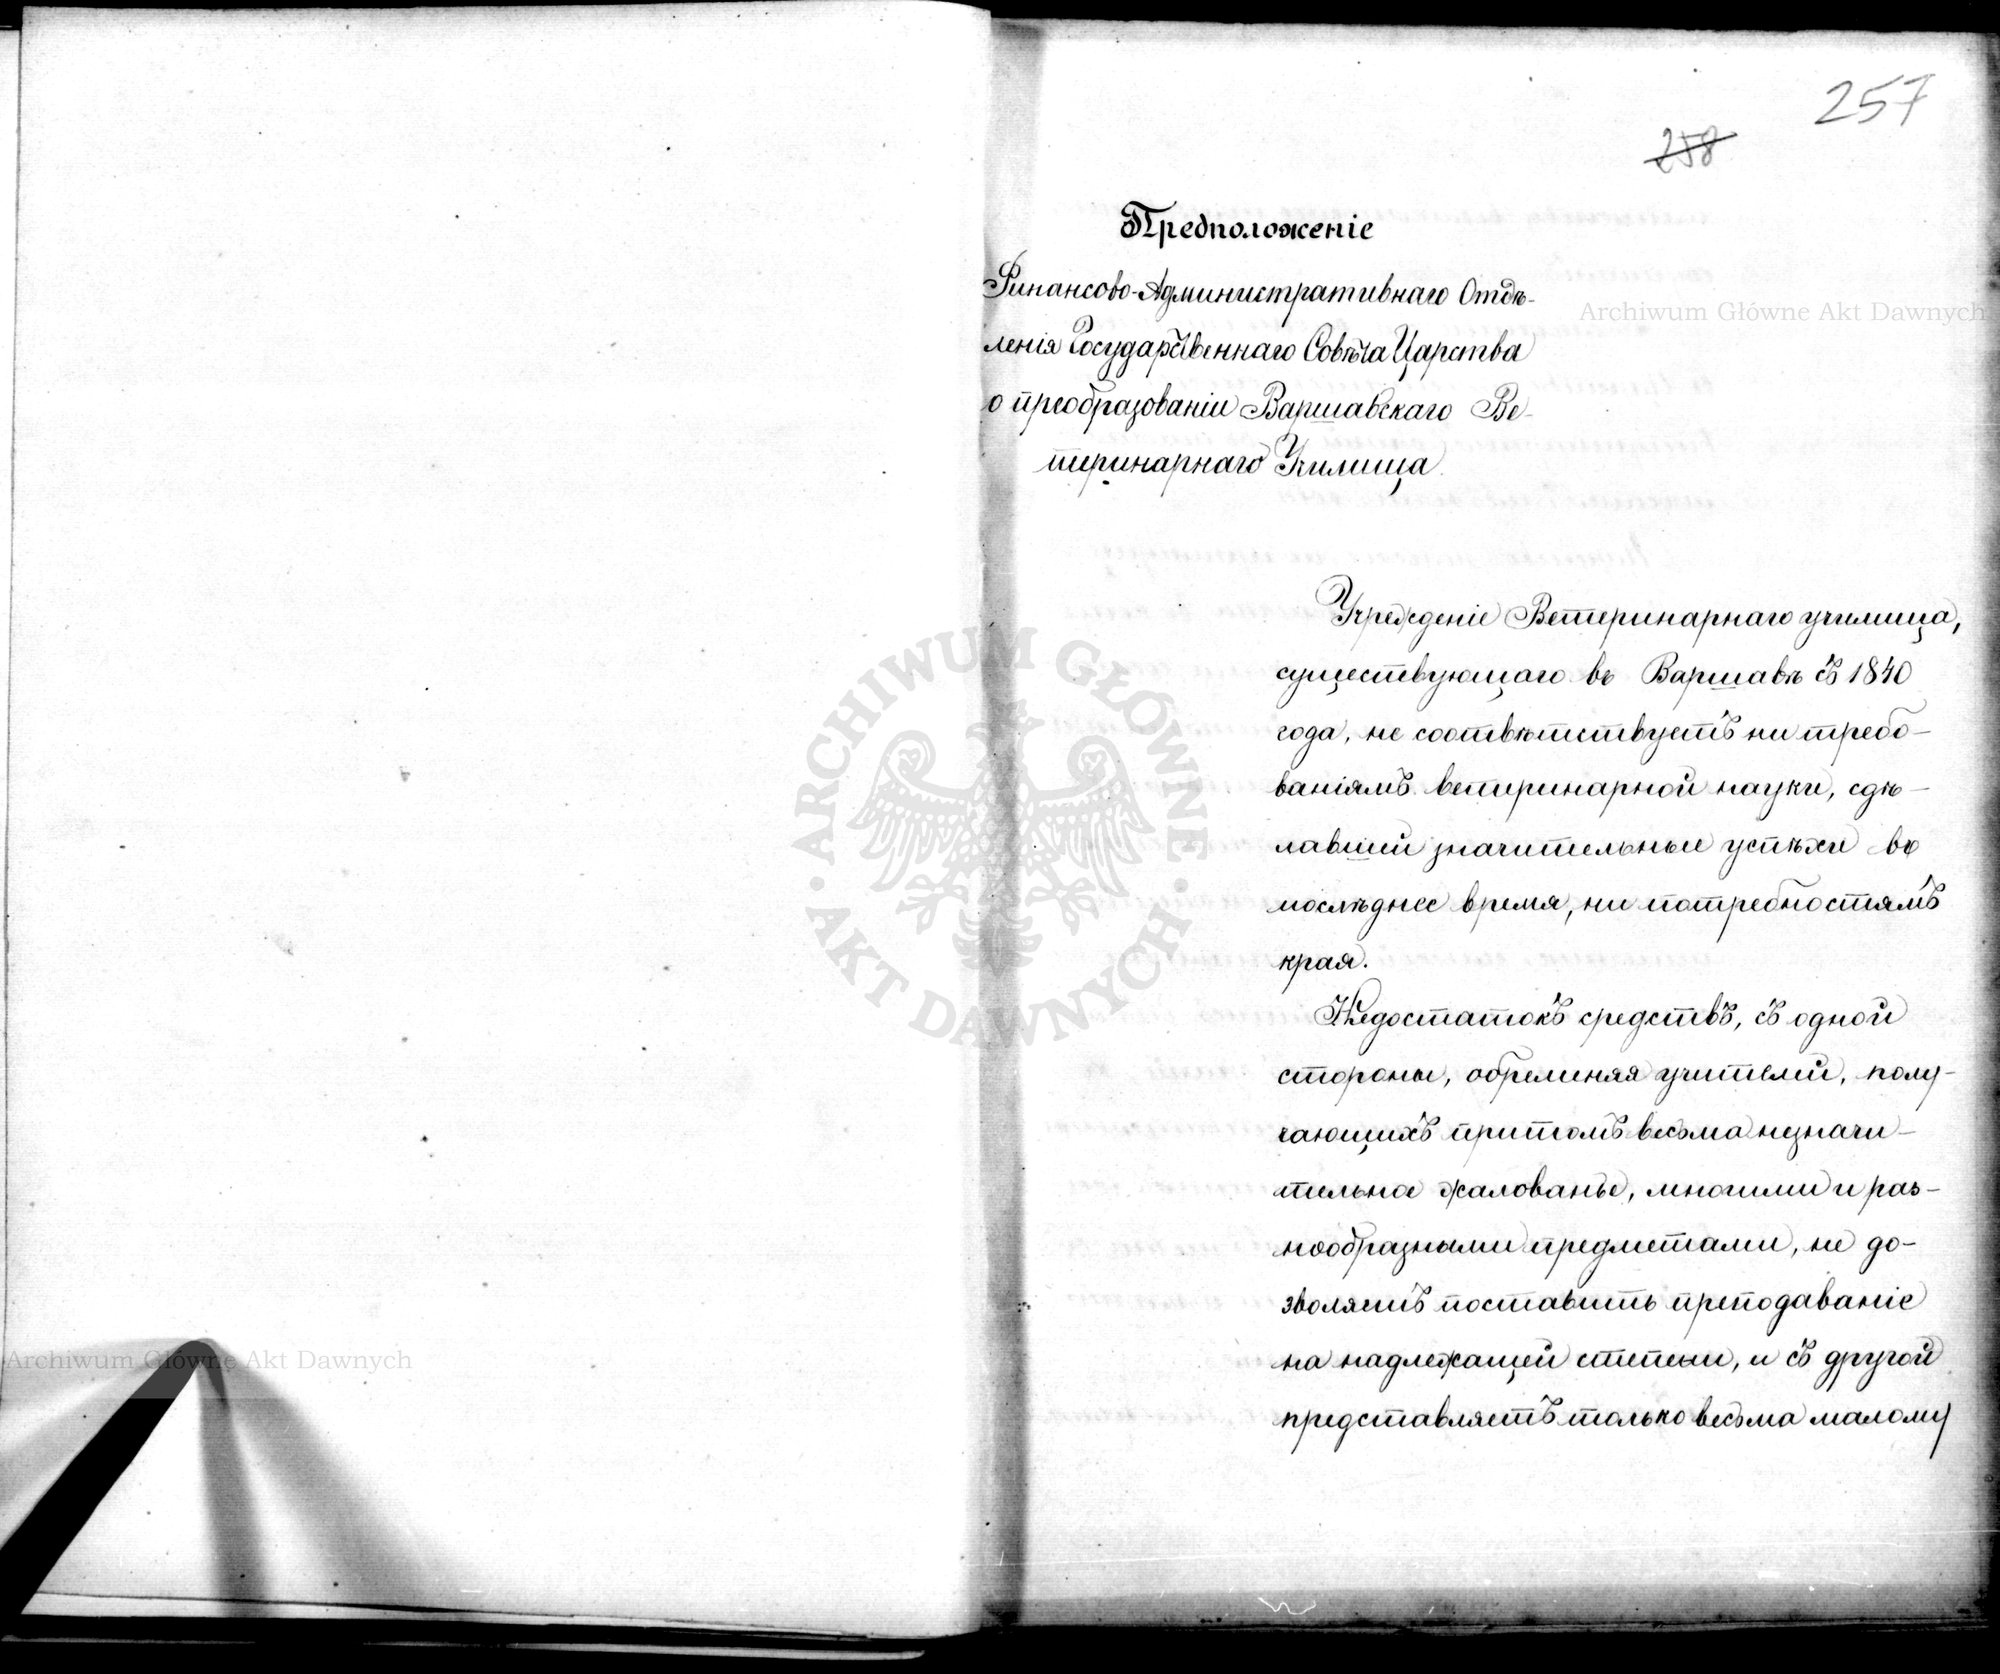 257
258
Предположеніе
Финансово-Административнаго Отдѣ-
ленія Государственнаго Совѣта Царства
о преобразованіи Варшавскаго Ве-
теринарнаго Училища.
Учрежденіе Ветеринарнаго училища,
существующаго въ Варшавѣ съ 1840
года, не соотвѣтствуетъ ни требо-
ваніямъ ветеринарной науки, сдѣ-
лавшей значительные успѣхи въ
послѣднее время, ни потребностямъ
края.
Недостатокъ средствъ, съ одной
стороны, обременяя учителей, полу-
чающихъ притомъ весьма незначи-
тельное жалованье, многими и раз-
нообразными предметами, не до-
зволяетъ поставить преподаваніе
на надлежащей степени, и съ другой
представляетъ только весьма малому
Archiwum Główne Akt Dawnych
ARCHIWUM GŁÓWNE AKT DAWNYCH
Archiwum Główne Akt Dawnych